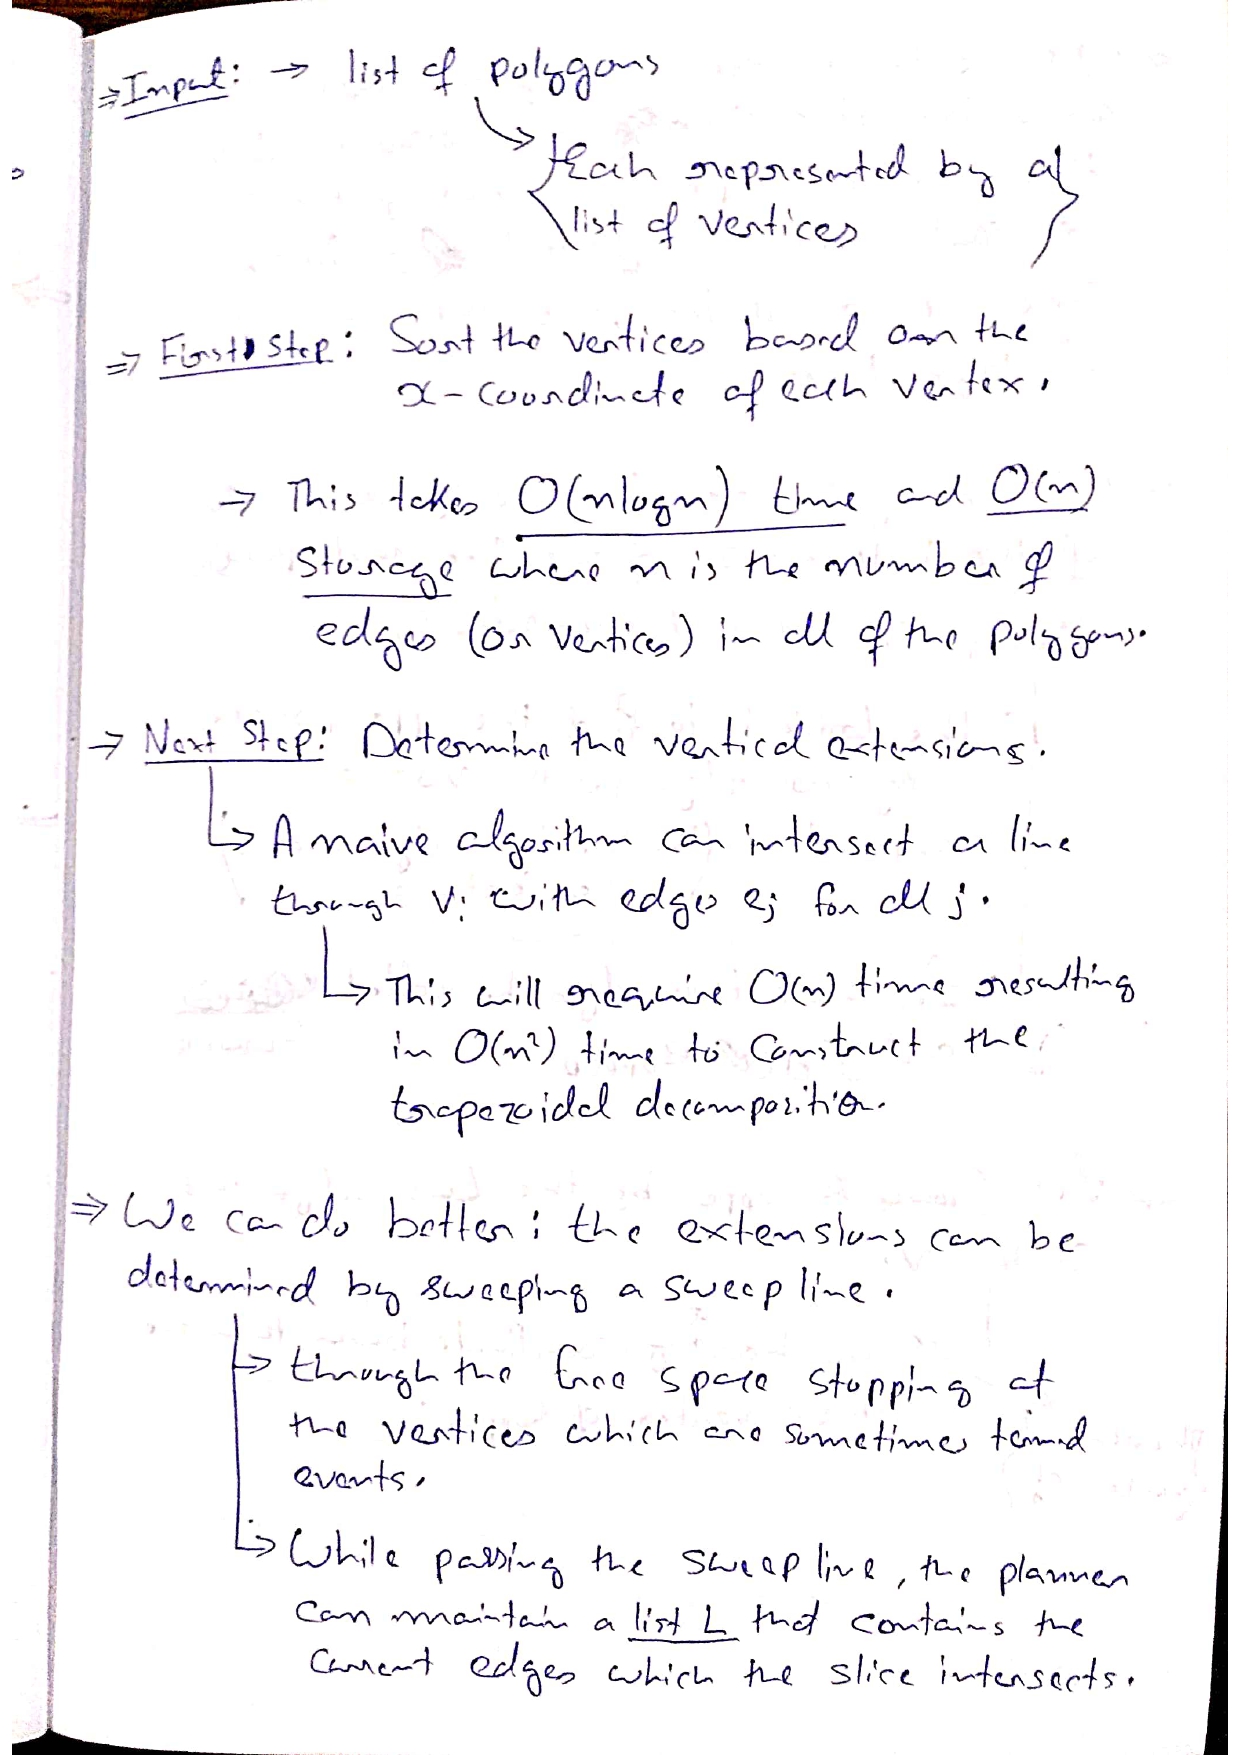 ⇒ Input: → list of polygons
↳ {Each represented by a
list of vertices}
⇒ First Step: Sort the vertices based on the
x-coordinate of each vertex.
→ This takes O(nlogn) time and O(n)
Storage where n is the number of
edges (or vertices) in all of the polygons.
→ Next Step: Determine the vertical extensions.
↳ A naive algorithm can intersect a line
through Vi with edges ej for all j.
↳ This will require O(n) time resulting
in O(n²) time to Construct the
trapezoidal decomposition.
⇒ We can do better: the extensions can be
determined by sweeping a sweep line.
↳ through the free space stopping at
the vertices which are sometimes termed
events.
↳ While passing the sweep line, the planner
can maintain a list L that contains the
Current edges which the slice intersects.